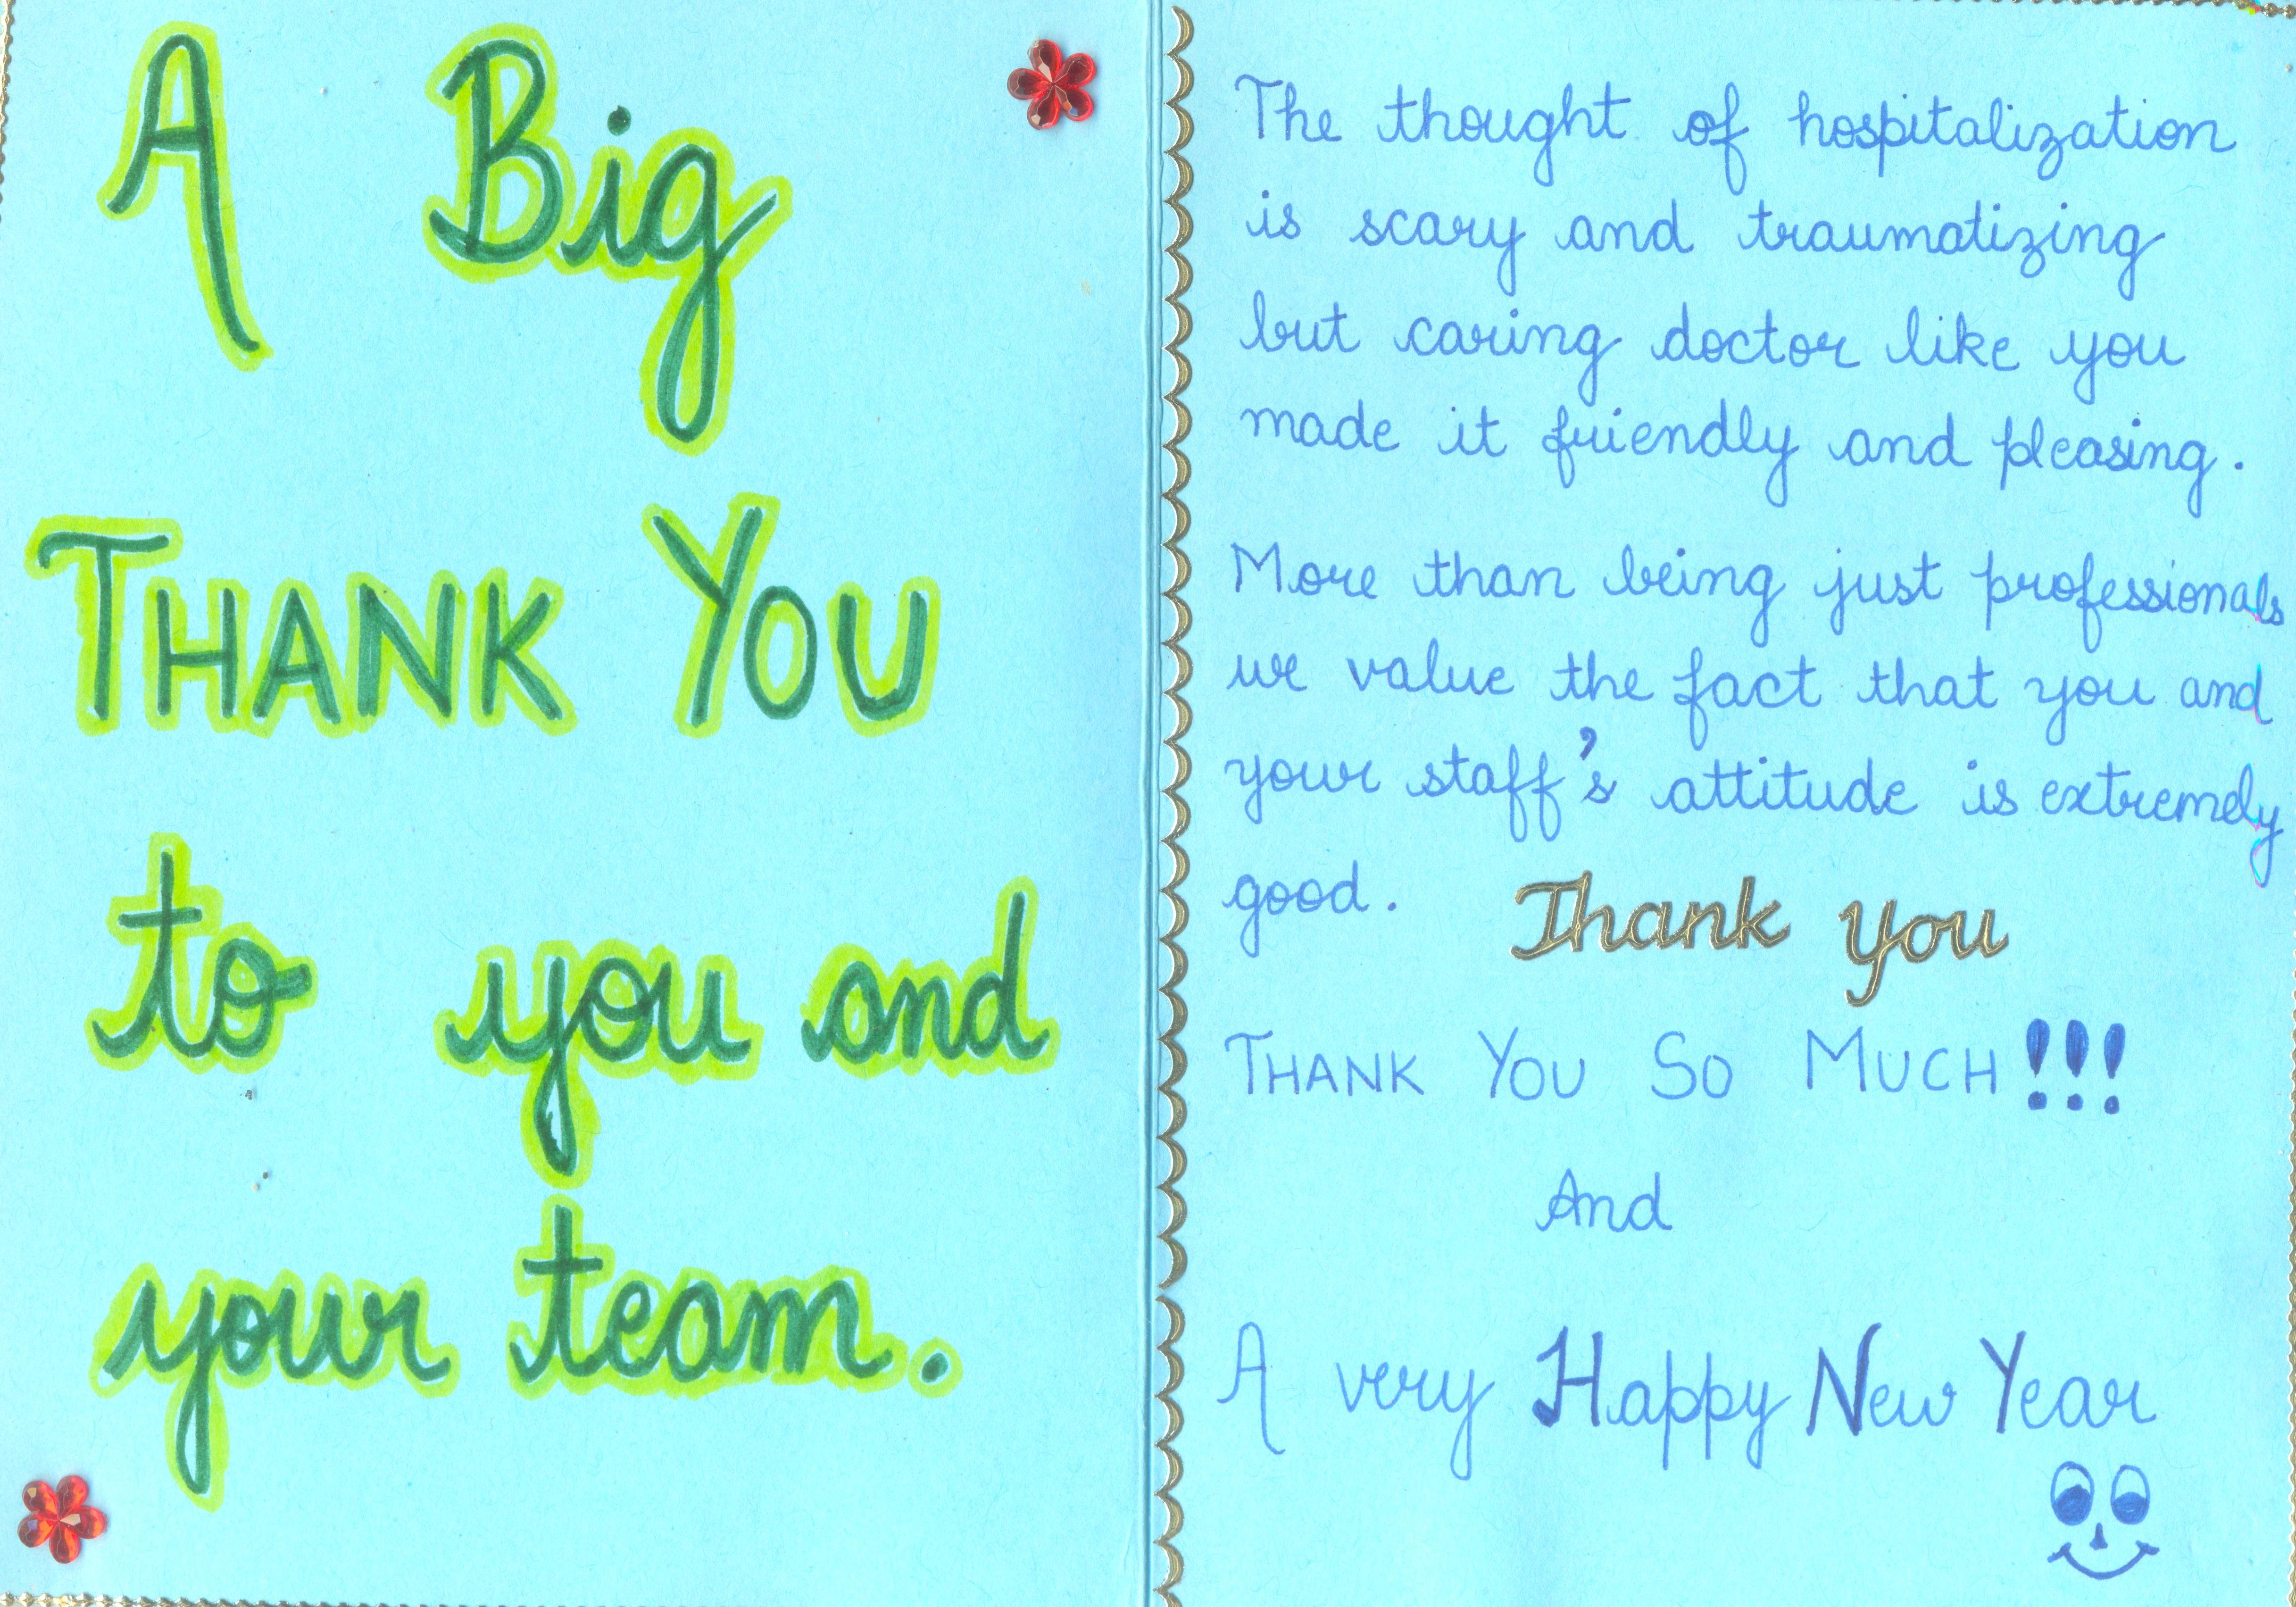 A Big
THANK YOU
to you and
your team.
The thought of hospitalization
is scary and traumatizing
but caring doctor like you
made it friendly and pleasing.
More than being just professionals
we value the fact that you and
your staff's attitude is extremely
good. Thank you
THANK YOU SO MUCH!!!
And
A very Happy New Year